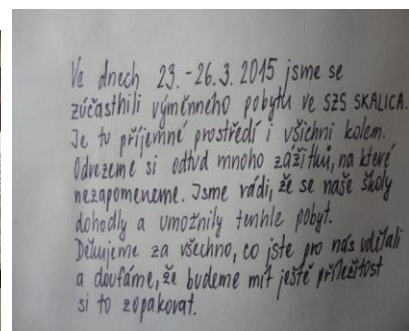 Ve dnech 23.-26.3.2015 jsme se
zúčasthili výměnného pobytu ve SZŠ SKALICA.
Je tu příjemné prostředí i všichni kolem.
Odvezeme si odtud mnoho zážitků, na které
nezapomeneme. Jsme rádi, že se naše školy
dohodly a umožnily tenhle pobyt.
Děkujeme za všechno, co jste pro nás udělali
a doufáme, že budeme mít ještě příležitost
si to zopakovat.